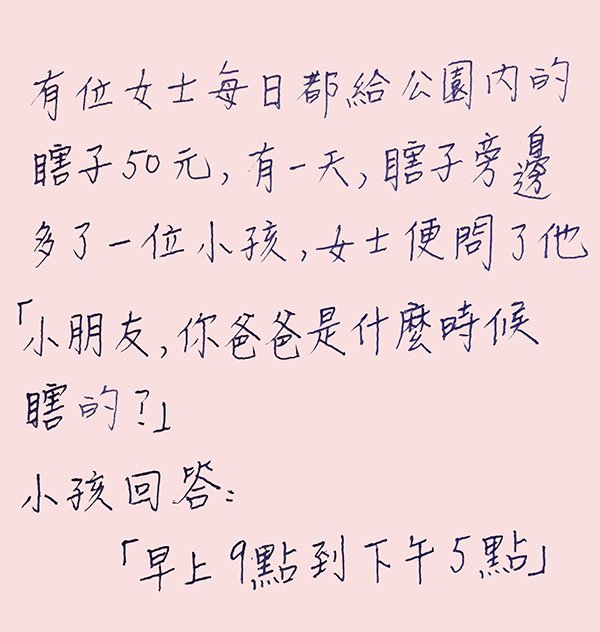 有位女士每日都給公園內的
瞎子50元,有一天,瞎子旁邊
多了一位小孩,女士便問了他
「小朋友,你爸爸是什麼時候
瞎的?」
小孩回答:
「早上9點到下午5點」